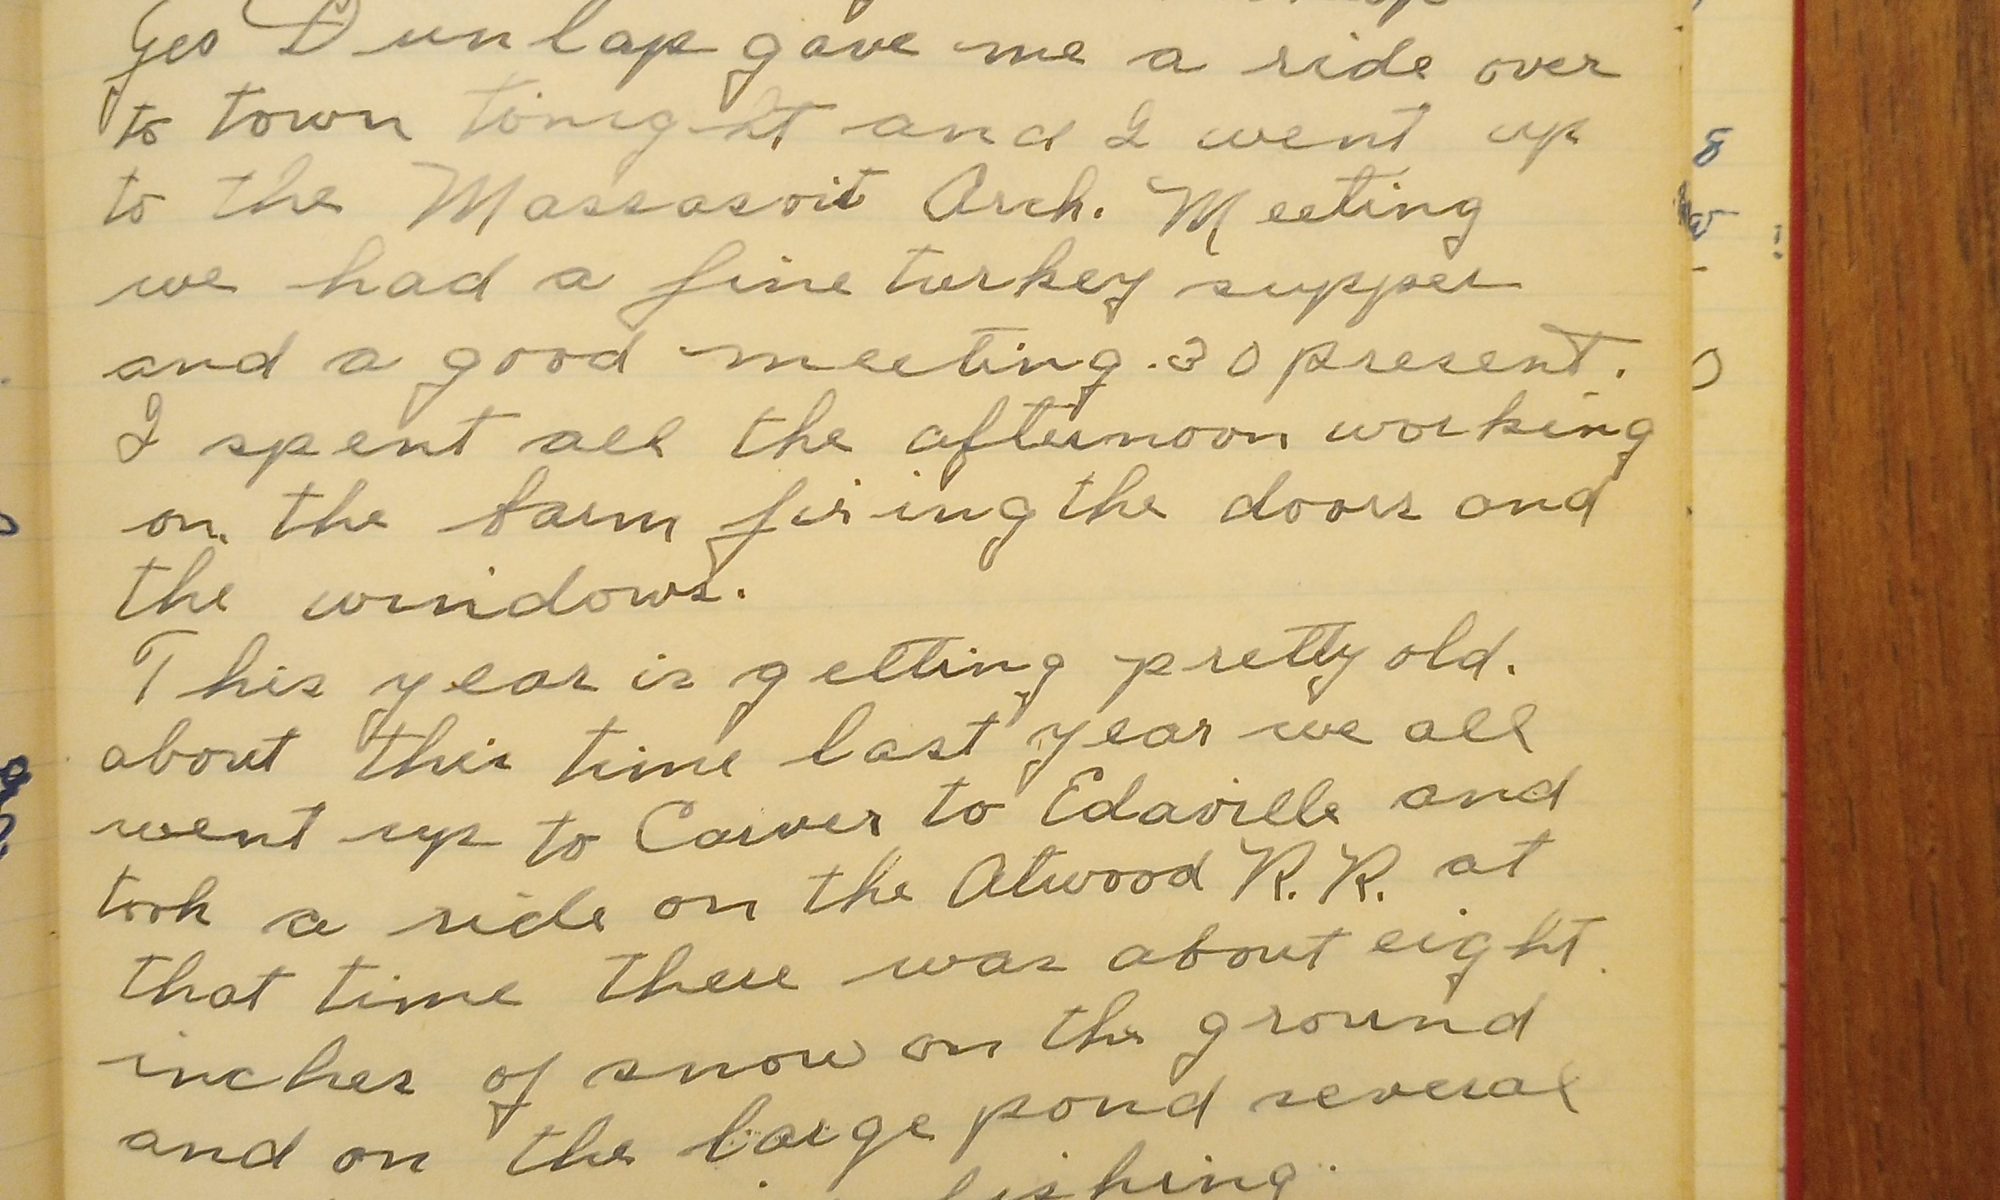 Geo Dunlap gave me a ride over
to town tonight and I went up
to the Massasoit Arch. Meeting
we had a fine turkey supper
and a good meeting. 30 present.
I spent all the afternoon working
on the barn fixing the doors and
the windows.
This year is getting pretty old.
about this time last year we all
went up to Carver to Edaville and
took a ride on the Atwood R.R. at
that time there was about eight
inches of snow on the ground
and on the large pond several
fishing.